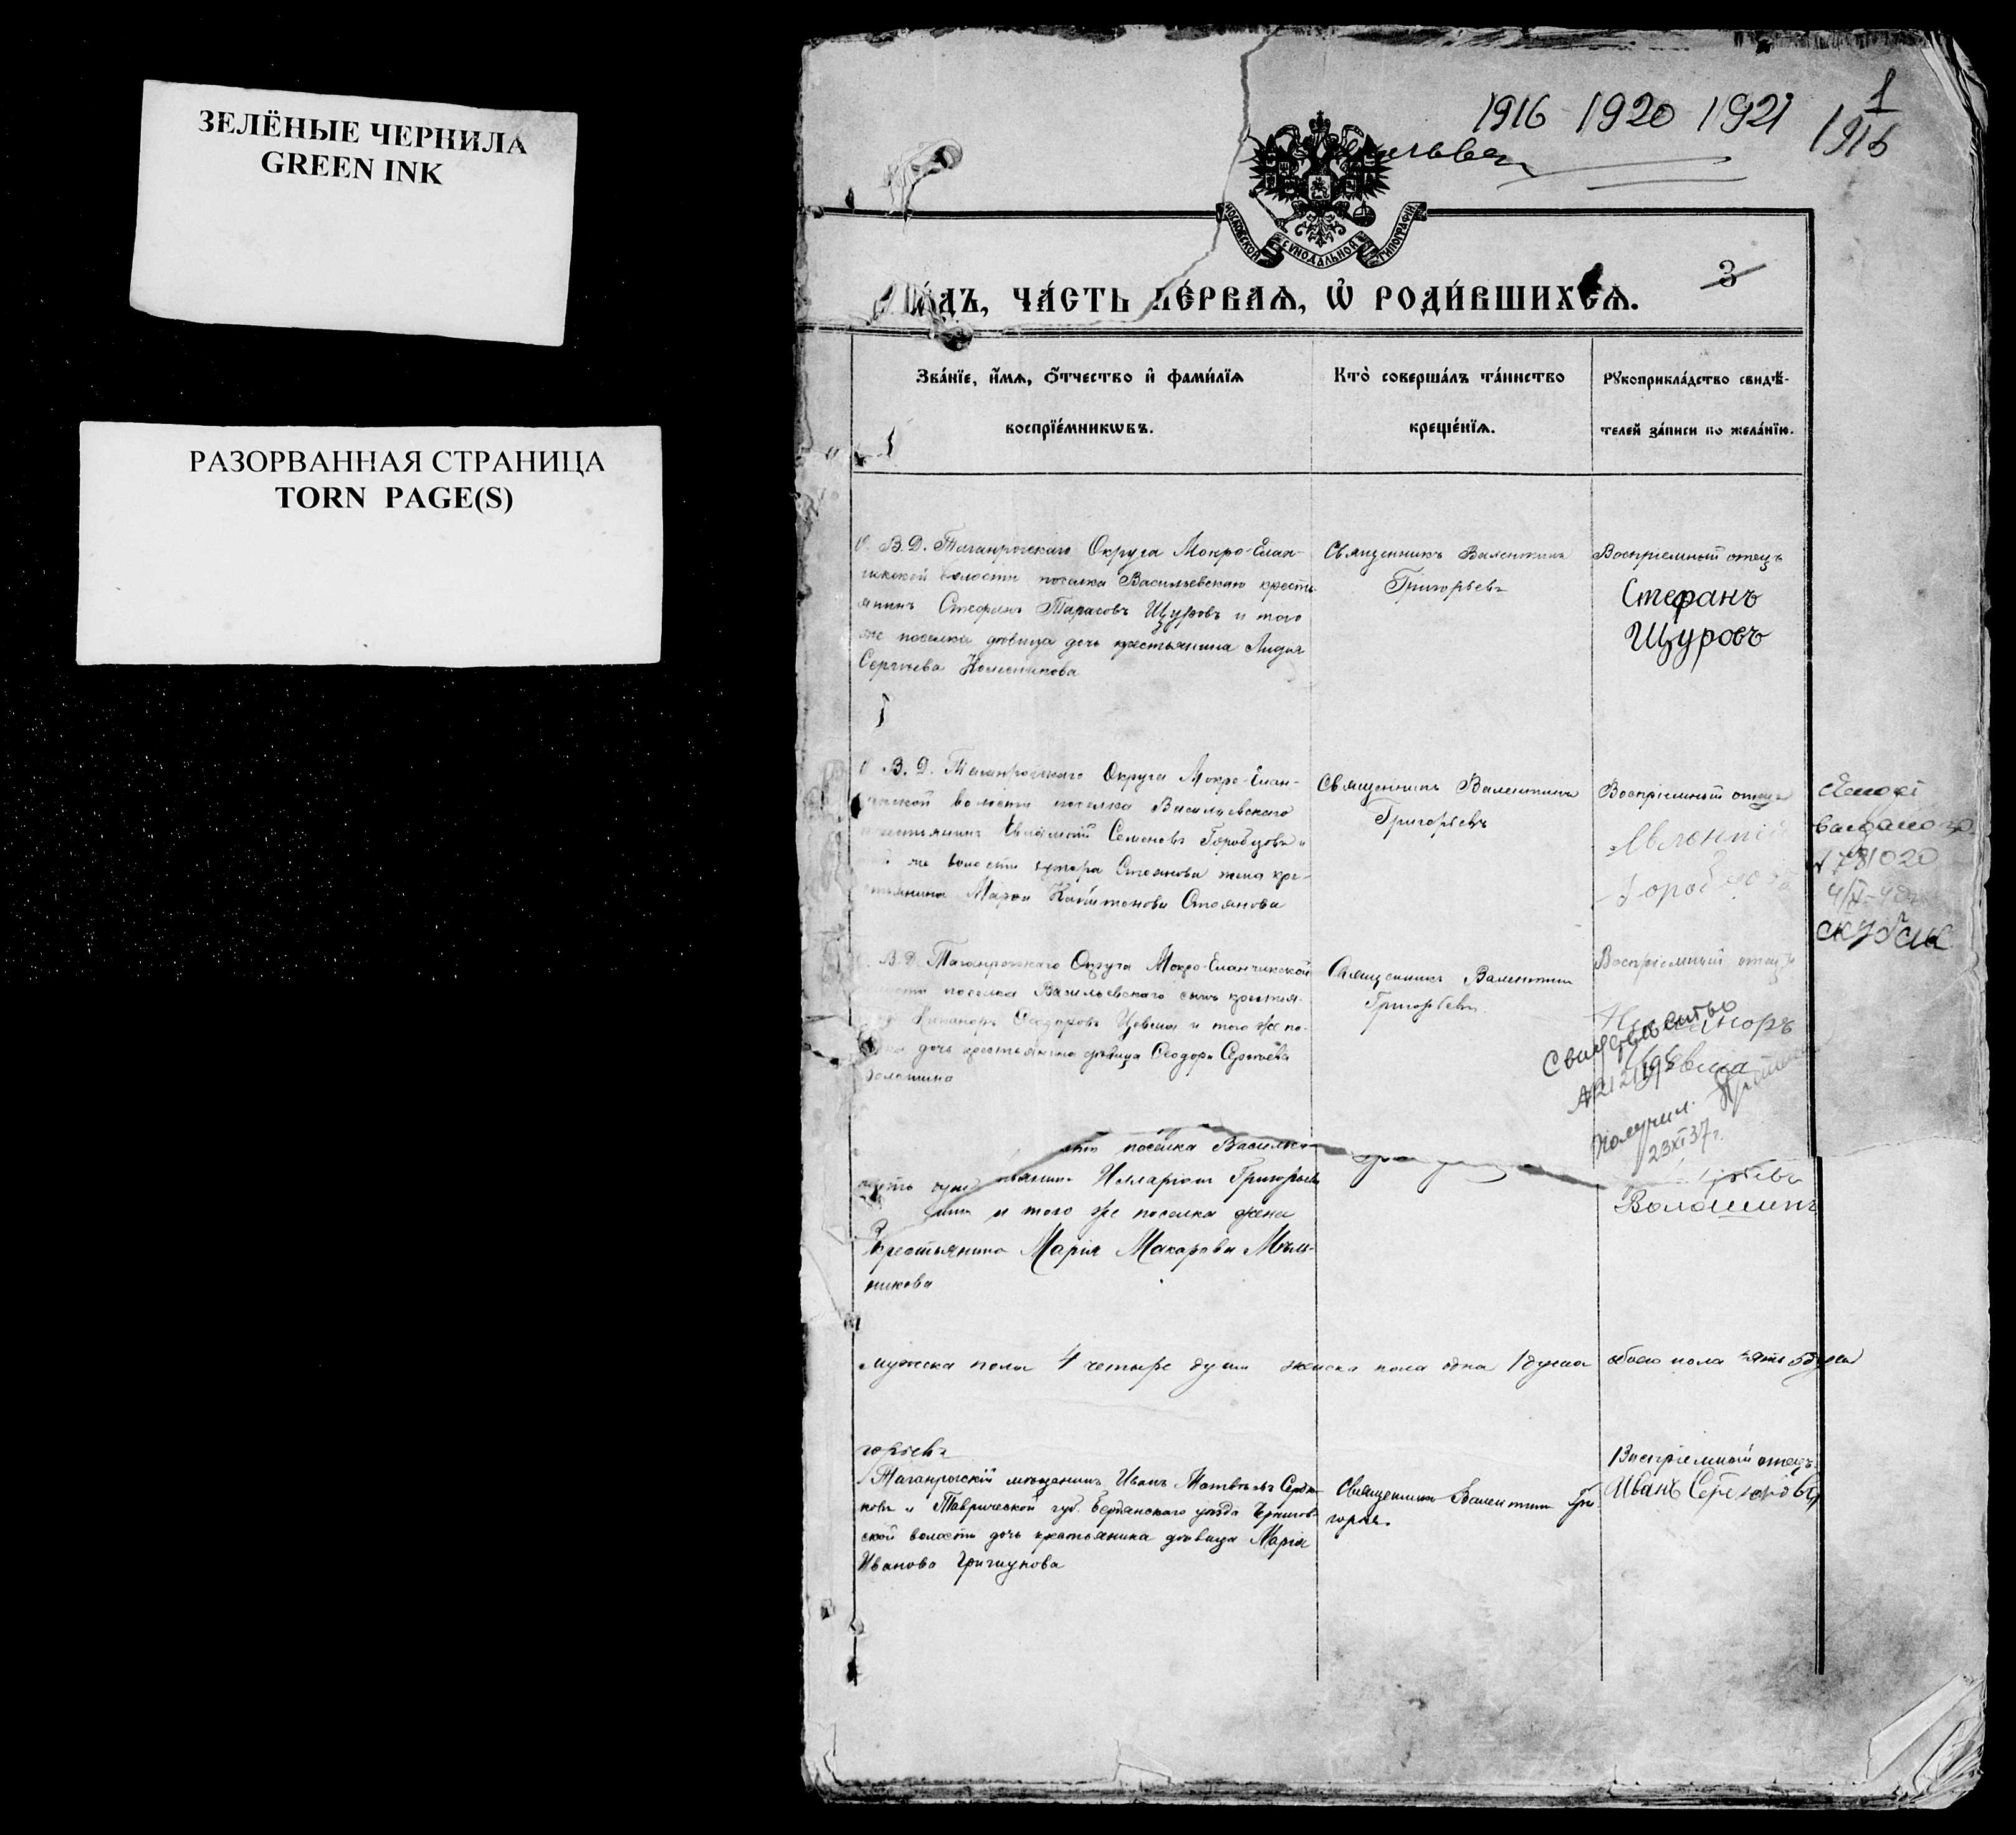 ЗЕЛЁНЫЕ ЧЕРНИЛА
GREEN INK
РАЗОРВАННАЯ СТРАНИЦА
TORN PAGE(S)
1916 1920 1921
1
1916
МОСКОВСКОЙ СУНОДАЛЬНОЙ ТИПОГРАФІИ
3
ЧА́СТЬ ПЕ́РВАЯ, Ѡ РОДИ́ВШИХСЯ.
Зва́нїе, и҆́мѧ, ѻ҆́тчество и҆ фами́лїѧ
воспрїе́мникѡвъ.
Кто̀ соверша́лъ та́инство
креще́нїѧ.
Рꙋкоприкла́дство свидѣ́-
телей за́писи по жела́нїю.
О. В. Д. Таганрогскаго Округа Мокро-Елан-
чикской волости поселка Васильевскаго кресть-
янинъ Стефанъ Тарасовъ Щуровъ и того
же поселка дѣвица дочь крестьянина Лидія
Сергѣева
Священникъ Валентинъ
Григорьевъ
Воспріемный отецъ
Стефанъ
Щуровъ
О. В. Д. Таганрогскаго Округа Мокро-Елан-
чикской волости поселка Васильевскаго
крестьянинъ Семеновъ Городцовъ и
той же волости хутора Стоянова жена кре-
стьянина Марѳа Капитонова Стоянова
Священникъ Валентинъ
Григорьевъ
Воспріемный отецъ
№ 781020
В. Д. Таганрогскаго Округа Мокро-Еланчикской
волости поселка Васильевскаго сынъ крестья-
Никаноръ Ѳедоровъ Цевма и того же по-
селка дочь крестьянина дѣвица Ѳеодора Сергѣева
Волошина
Священникъ Валентинъ
Григорьевъ
Воспріемный отецъ
Никаноръ
Цевма
Свидѣтельство
Получил.
23 XI 37 г.
поселка Василье-
Илларіонъ Григорьевъ
и того же поселка жена
крестьянина Марія Макарова Мѣль-
никова
Волошинъ
мужска пола 4 четыре души женска пола одна 1 душа обоего пола пять 5 душъ
горьевъ
Таганрогскій мѣщанинъ Иванъ Матвѣевъ
и Таврической губ. Бердянскаго уѣзда Чернигов-
ской волости дочь крестьянина дѣвица Марія
Иванова
Священникъ Валентинъ Гри-
горьев
Воспріемный отецъ
Иванъ